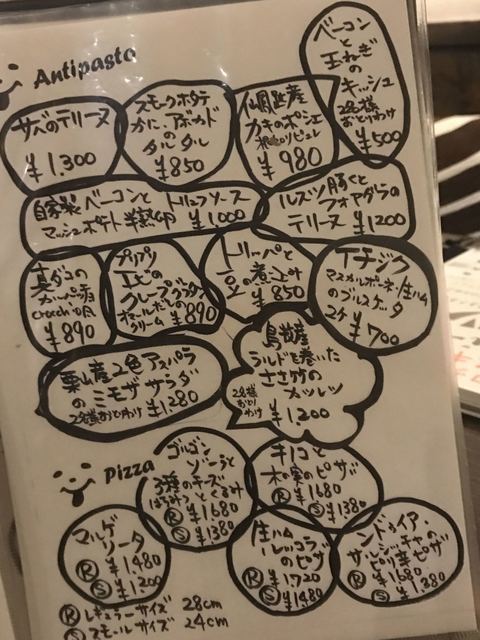 Antipasto
ベーコン
と
玉ねぎ
の
キッシュ
2名様
おとりわけ
¥500
サバのテリーヌ
¥1,300
スモークホタテ
かに、アボカド
の
タルタル
¥850
仙鳳趾産
カキのポシェ
¥980
自家製ベーコンと
マッシュポテト半熟卵
トリュフソース
¥1000
ルスツ豚くと
フォアグラの
テリーヌ ¥1200
真ダコの
¥890
プリプリ
エビの
クレープグラタン
オマールだし
クリーム ¥890
トリッパと
豆の煮込み
¥850
イチジク
マスカルポーネ・生ハム
のブルスケッタ
2ケ ¥700
栗山産2色アスパラ
の ミモザ サラダ
2名様おとりわけ ¥1,280
ラルドを巻いた
ささ竹の
カツレツ
2名様
おとりわけ
¥1,200
Pizza
ゴルゴン
ゾーラと
3種のチーズ
はちみつとくるみ
Ⓡ ¥1680
Ⓢ ¥1380
キノコと
木の実のピザ
Ⓡ ¥1680
Ⓢ ¥1380
マルゲ
リータ
Ⓡ ¥1480
Ⓢ ¥1200
生ハム
ルッコラ
のピザ
Ⓡ ¥1720
Ⓢ ¥1480
ンドゥイア・
サルシッチャの
ピリ辛ピザ
Ⓡ ¥1680
Ⓢ ¥1380
Ⓡ レギュラーサイズ 28cm
Ⓢ スモールサイズ 24cm